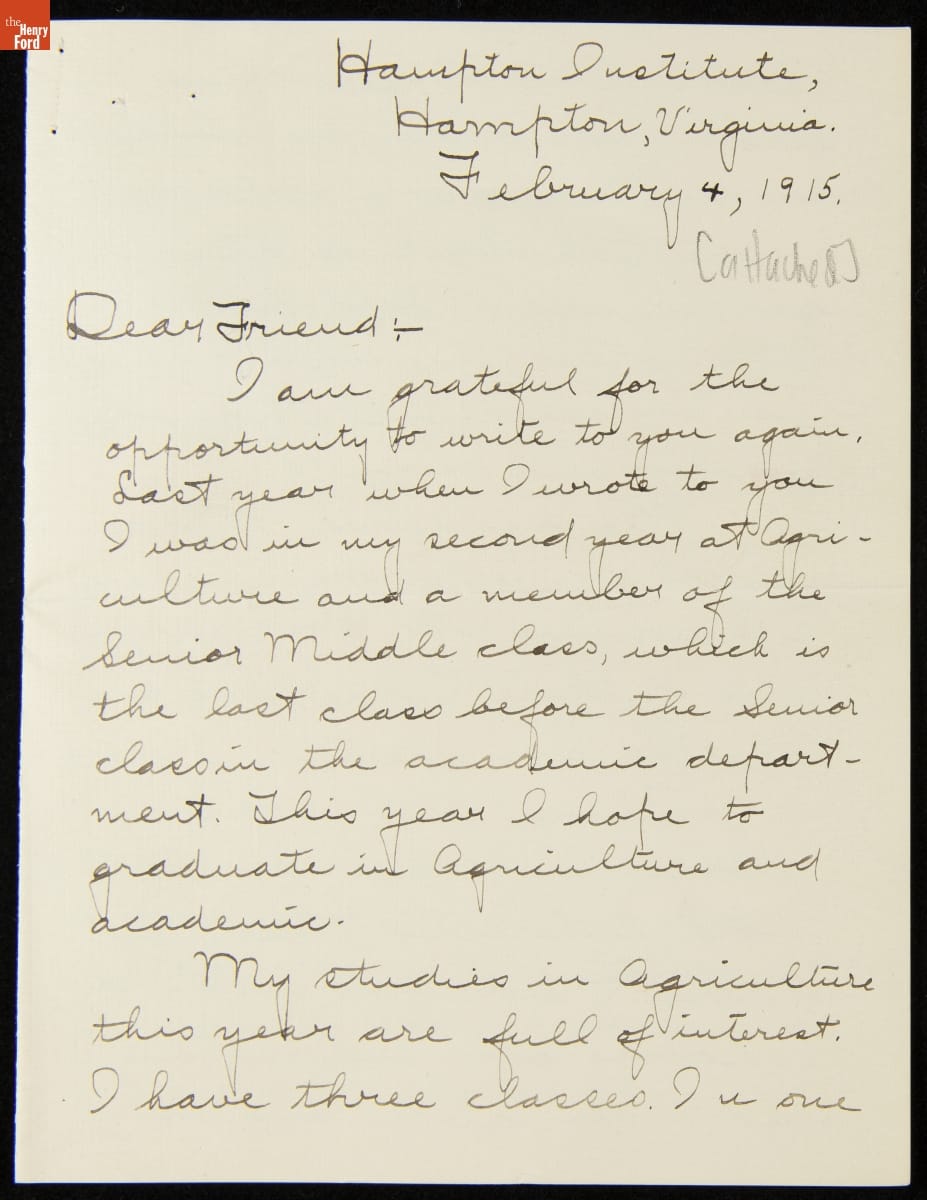 the
Henry
Ford
Hampton Institute,
Hampton, Virginia.
February 4, 1915.
[attached]
Dear Friend:-
I am grateful for the
opportunity to write to you again.
Last year when I wrote to you
I was in my second year at Agri-
culture and a member of the
Senior Middle class, which is
the last class before the Senior
class in the academic depart-
ment. This year I hope to
graduate in Agriculture and
academic.
My studies in Agriculture
this year are full of interest.
I have three classes. In one